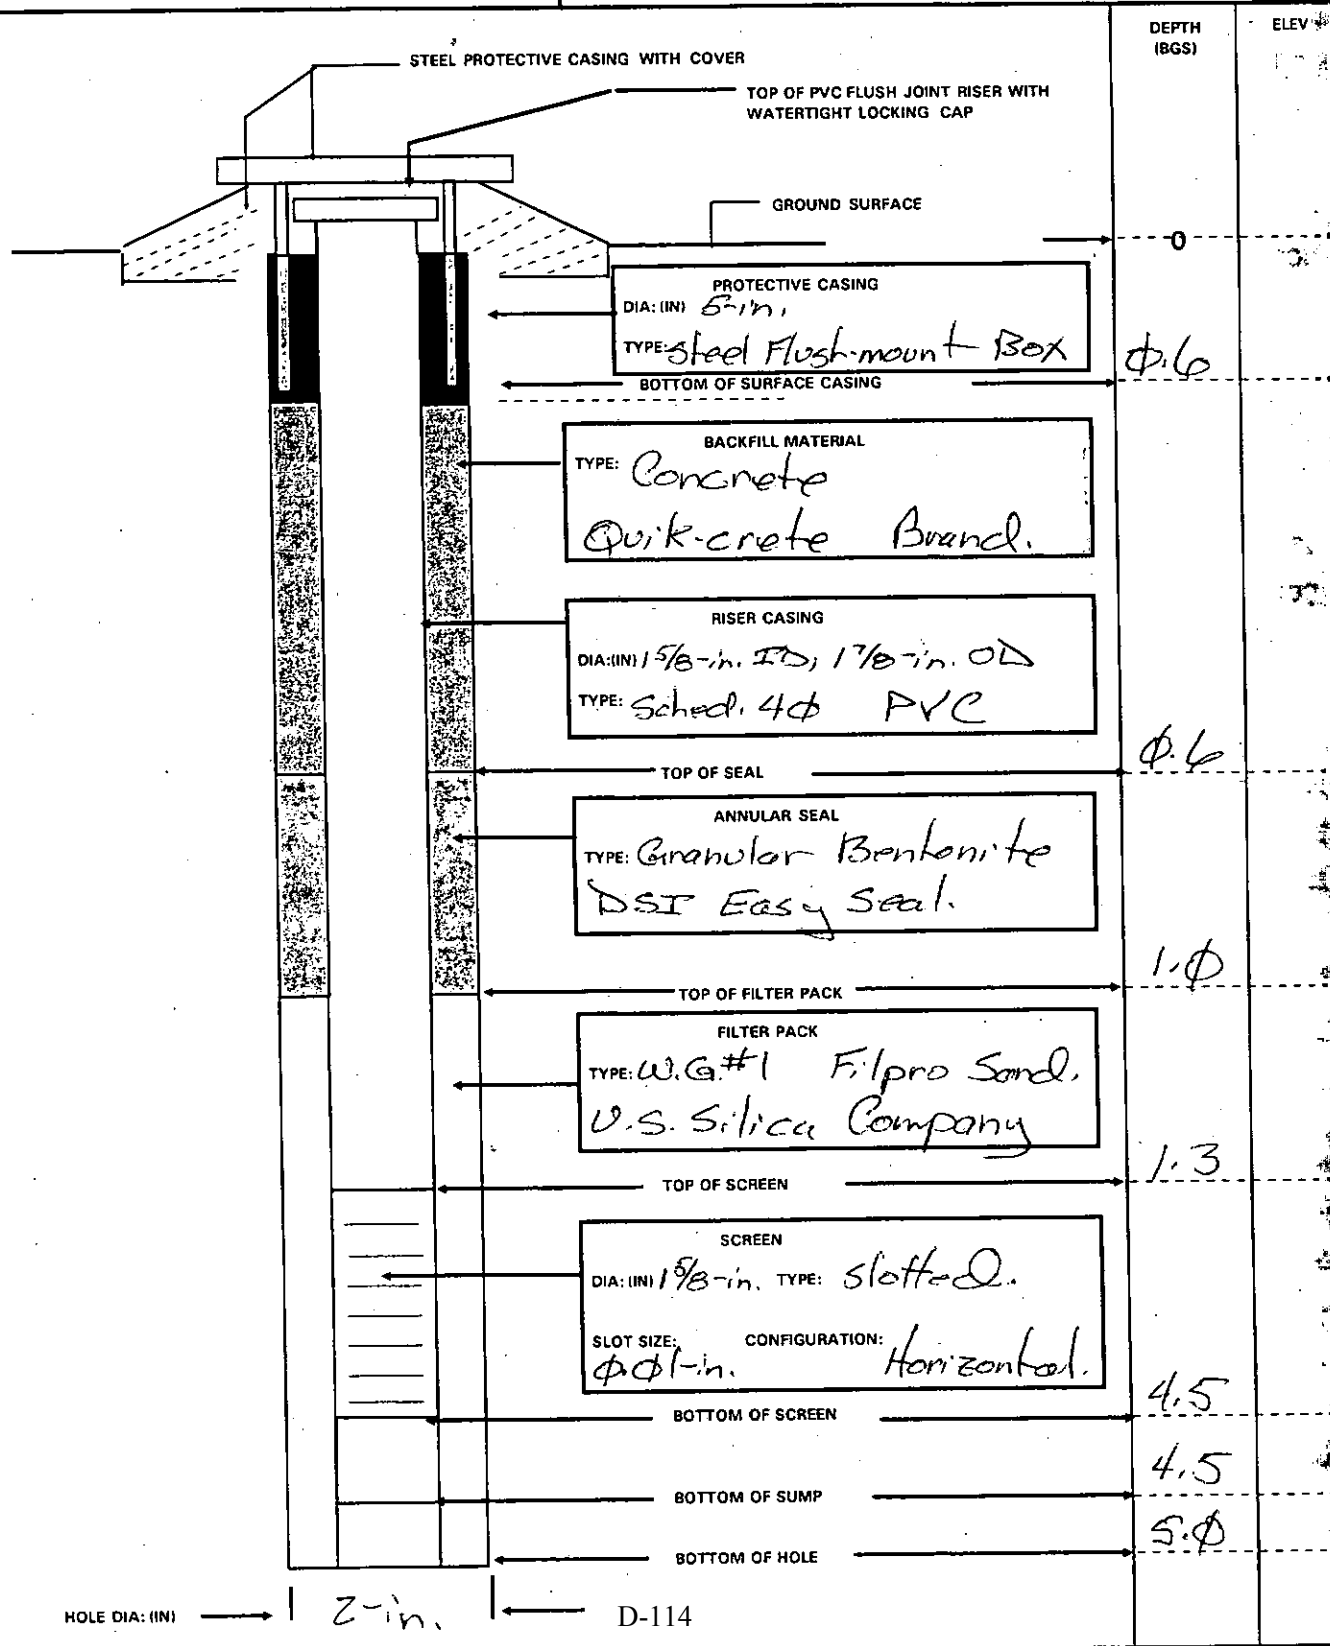 DEPTH
(BGS)
ELEV
STEEL PROTECTIVE CASING WITH COVER
TOP OF PVC FLUSH JOINT RISER WITH
WATERTIGHT LOCKING CAP
GROUND SURFACE
0
PROTECTIVE CASING
DIA: (IN) 5-in.
TYPE: Steel Flush-mount Box
0.6
BOTTOM OF SURFACE CASING
BACKFILL MATERIAL
TYPE: Concrete
Quik-crete Brand.
RISER CASING
DIA:(IN) 1 5/8-in. ID, 1 7/8-in. OD
TYPE: Sched. 40 PVC
0.6
TOP OF SEAL
ANNULAR SEAL
TYPE: Granular Bentonite
DSI Easy Seal.
1.0
TOP OF FILTER PACK
FILTER PACK
TYPE: W.G. #1 Filpro Sand.
U.S. Silica Company
1.3
TOP OF SCREEN
SCREEN
DIA: (IN) 1 5/8-in. TYPE: Slotted.
SLOT SIZE: 0.01-in. CONFIGURATION: Horizontal.
4.5
BOTTOM OF SCREEN
4.5
BOTTOM OF SUMP
5.0
BOTTOM OF HOLE
HOLE DIA: (IN) 2-in.
D-114